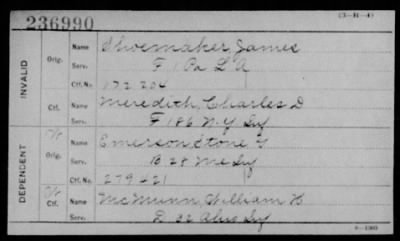 236990
(3-H-4)
INVALID
Orig.
Name Shoemaker, James
Serv. F 1 Pa L A
Ctf. No. 172 204
Ctf.
Name Meredith, Charles D
Serv. F 186 N.Y. Inf
DEPENDENT
Orig.
Name Emerson
Serv. B 28 Me Inf
Ctf. No. 279 421
Ctf.
Name McMunn, William H
Serv. D 32 Ohio Inf